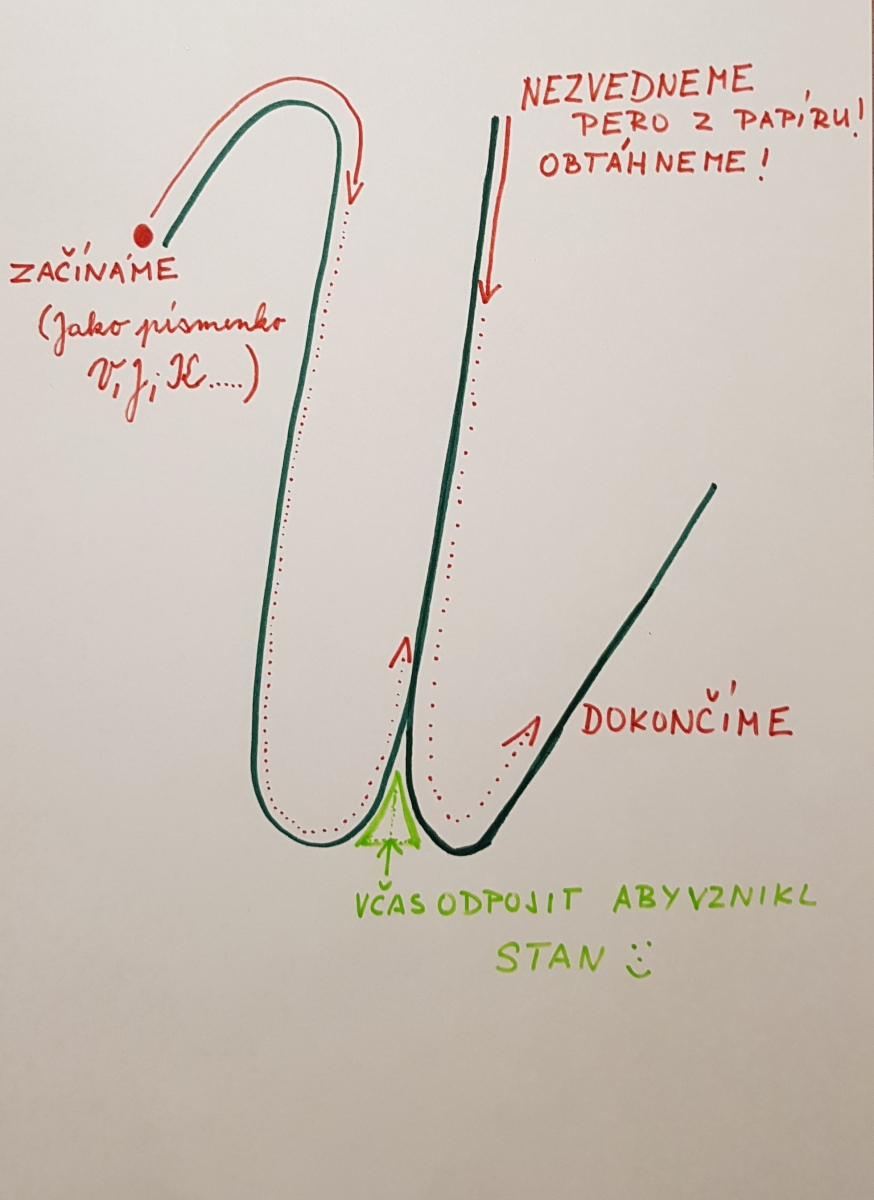 NEZVEDNEME
PERO Z PAPÍRU!
OBTÁHNEME!
ZAČÍNÁME
(Jako písmenko
V, J, K.....)
DOKONČÍME
VČAS ODPOJIT ABY VZNIKL
STAN :)